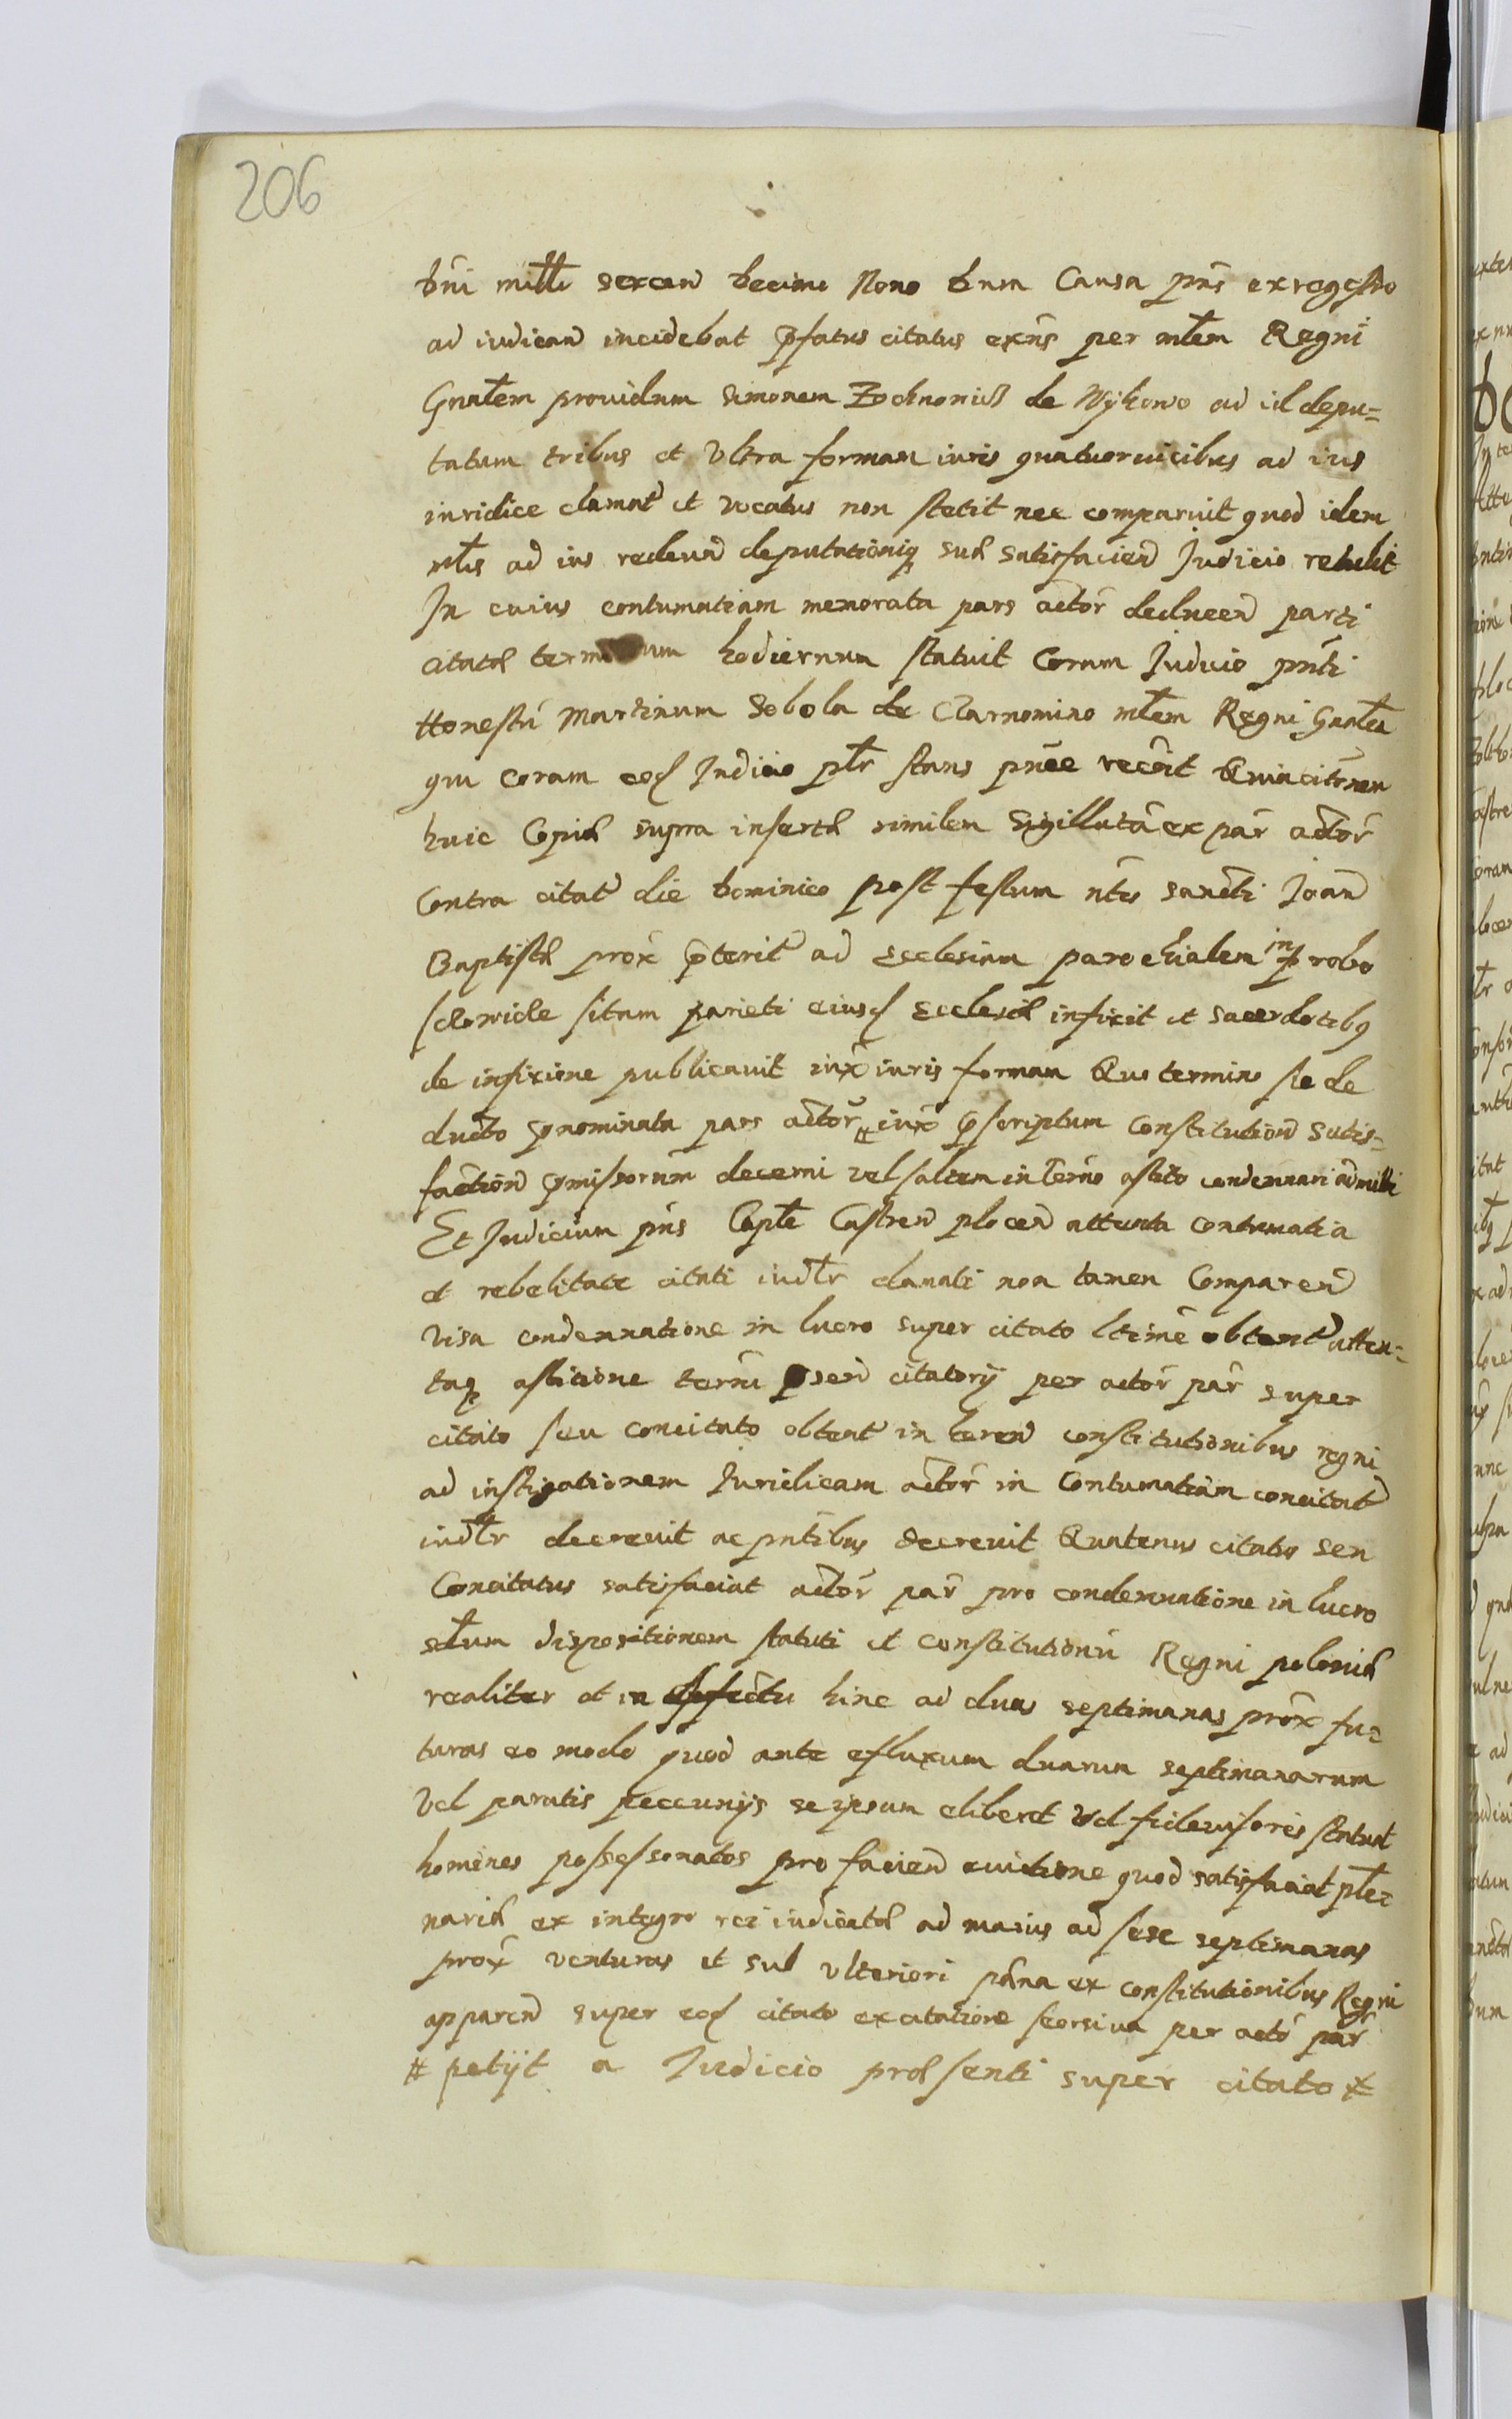 206
Dni mille sexcen decimo Nono dum Causa pns ex regestro
ad iudicand incidebat pfatus citatus exns per mlem Regni
Gnalem providum Simonem de Wykowo ad id depu=
tatum tribus et Vltra formam iuris quatuor vicibus ad ius
iuridice clamat et vocatus non stetit nec comparuit quod idem
mlis ad ius redeund deputationiq suæ satisfaciend Judicio retulit
In cuius contumatiam memorata pars actor deducend parti
citatæ terminum hodiernum statuit Coram Judicio pnti
Honestu Martinum Sobola de Czarnomino mlem Regni Gnalem
qui coram eod Judicio plr stans pnee recoit Quia citonem
huic Copiæ supra insertæ similem Sigillata ex par actor
Contra citat die Dominico post festum ntis Sancti Joan
Baptistæ prox pterit ad Ecclesiam parochialem in probo
sczewicze sitam parieti eiusd Ecclesiæ infixit et sacerdotibq
de infixione publicavit iux iuris formam Quo termino sic de
ducto pnominata pars actor # iux pscriptum Constitution Satis=
faction pmissorum decerni vel saltem in termo astito condemnari admitti
Et Judicium pns Capte Castren plocen attenta contumatia
et rebelitate citati iudlr clamati non tamen Comparen
visa condemnatione in lucro super citato ltime obtent atten=
taq astitione termi citatorij per actor par super
citato seu concitato obtent in constitutionibus regni
ad instigationem Juridicam actor in Contumatiam concitat
iudlr decrevit ac pntibus decrevit Quatenus citatus seu
Concitatus satisfaciat actor par pro condemnatione in lucro
sdum dispositionem statuti et constitutionu Regni poloniæ
realiter et in effectu hinc ad duas septimanas prox fu=
turas eo modo quod ante efluxum duarum septimanarum
Vel paratis peccunijs seipsum eliberet vel fideiussores statuat
homines possessionatos pro facien evictione quod satisfaciat ple=
nariæ ex integro rei iudicatæ ad maius ad sese septimanas
prox venturas et sub vlteriori pæna ex constitutionibus Regni
apparen super eod citato ex citatione seorsiva per acto par
# petijt a Judicio præsenti super citato #